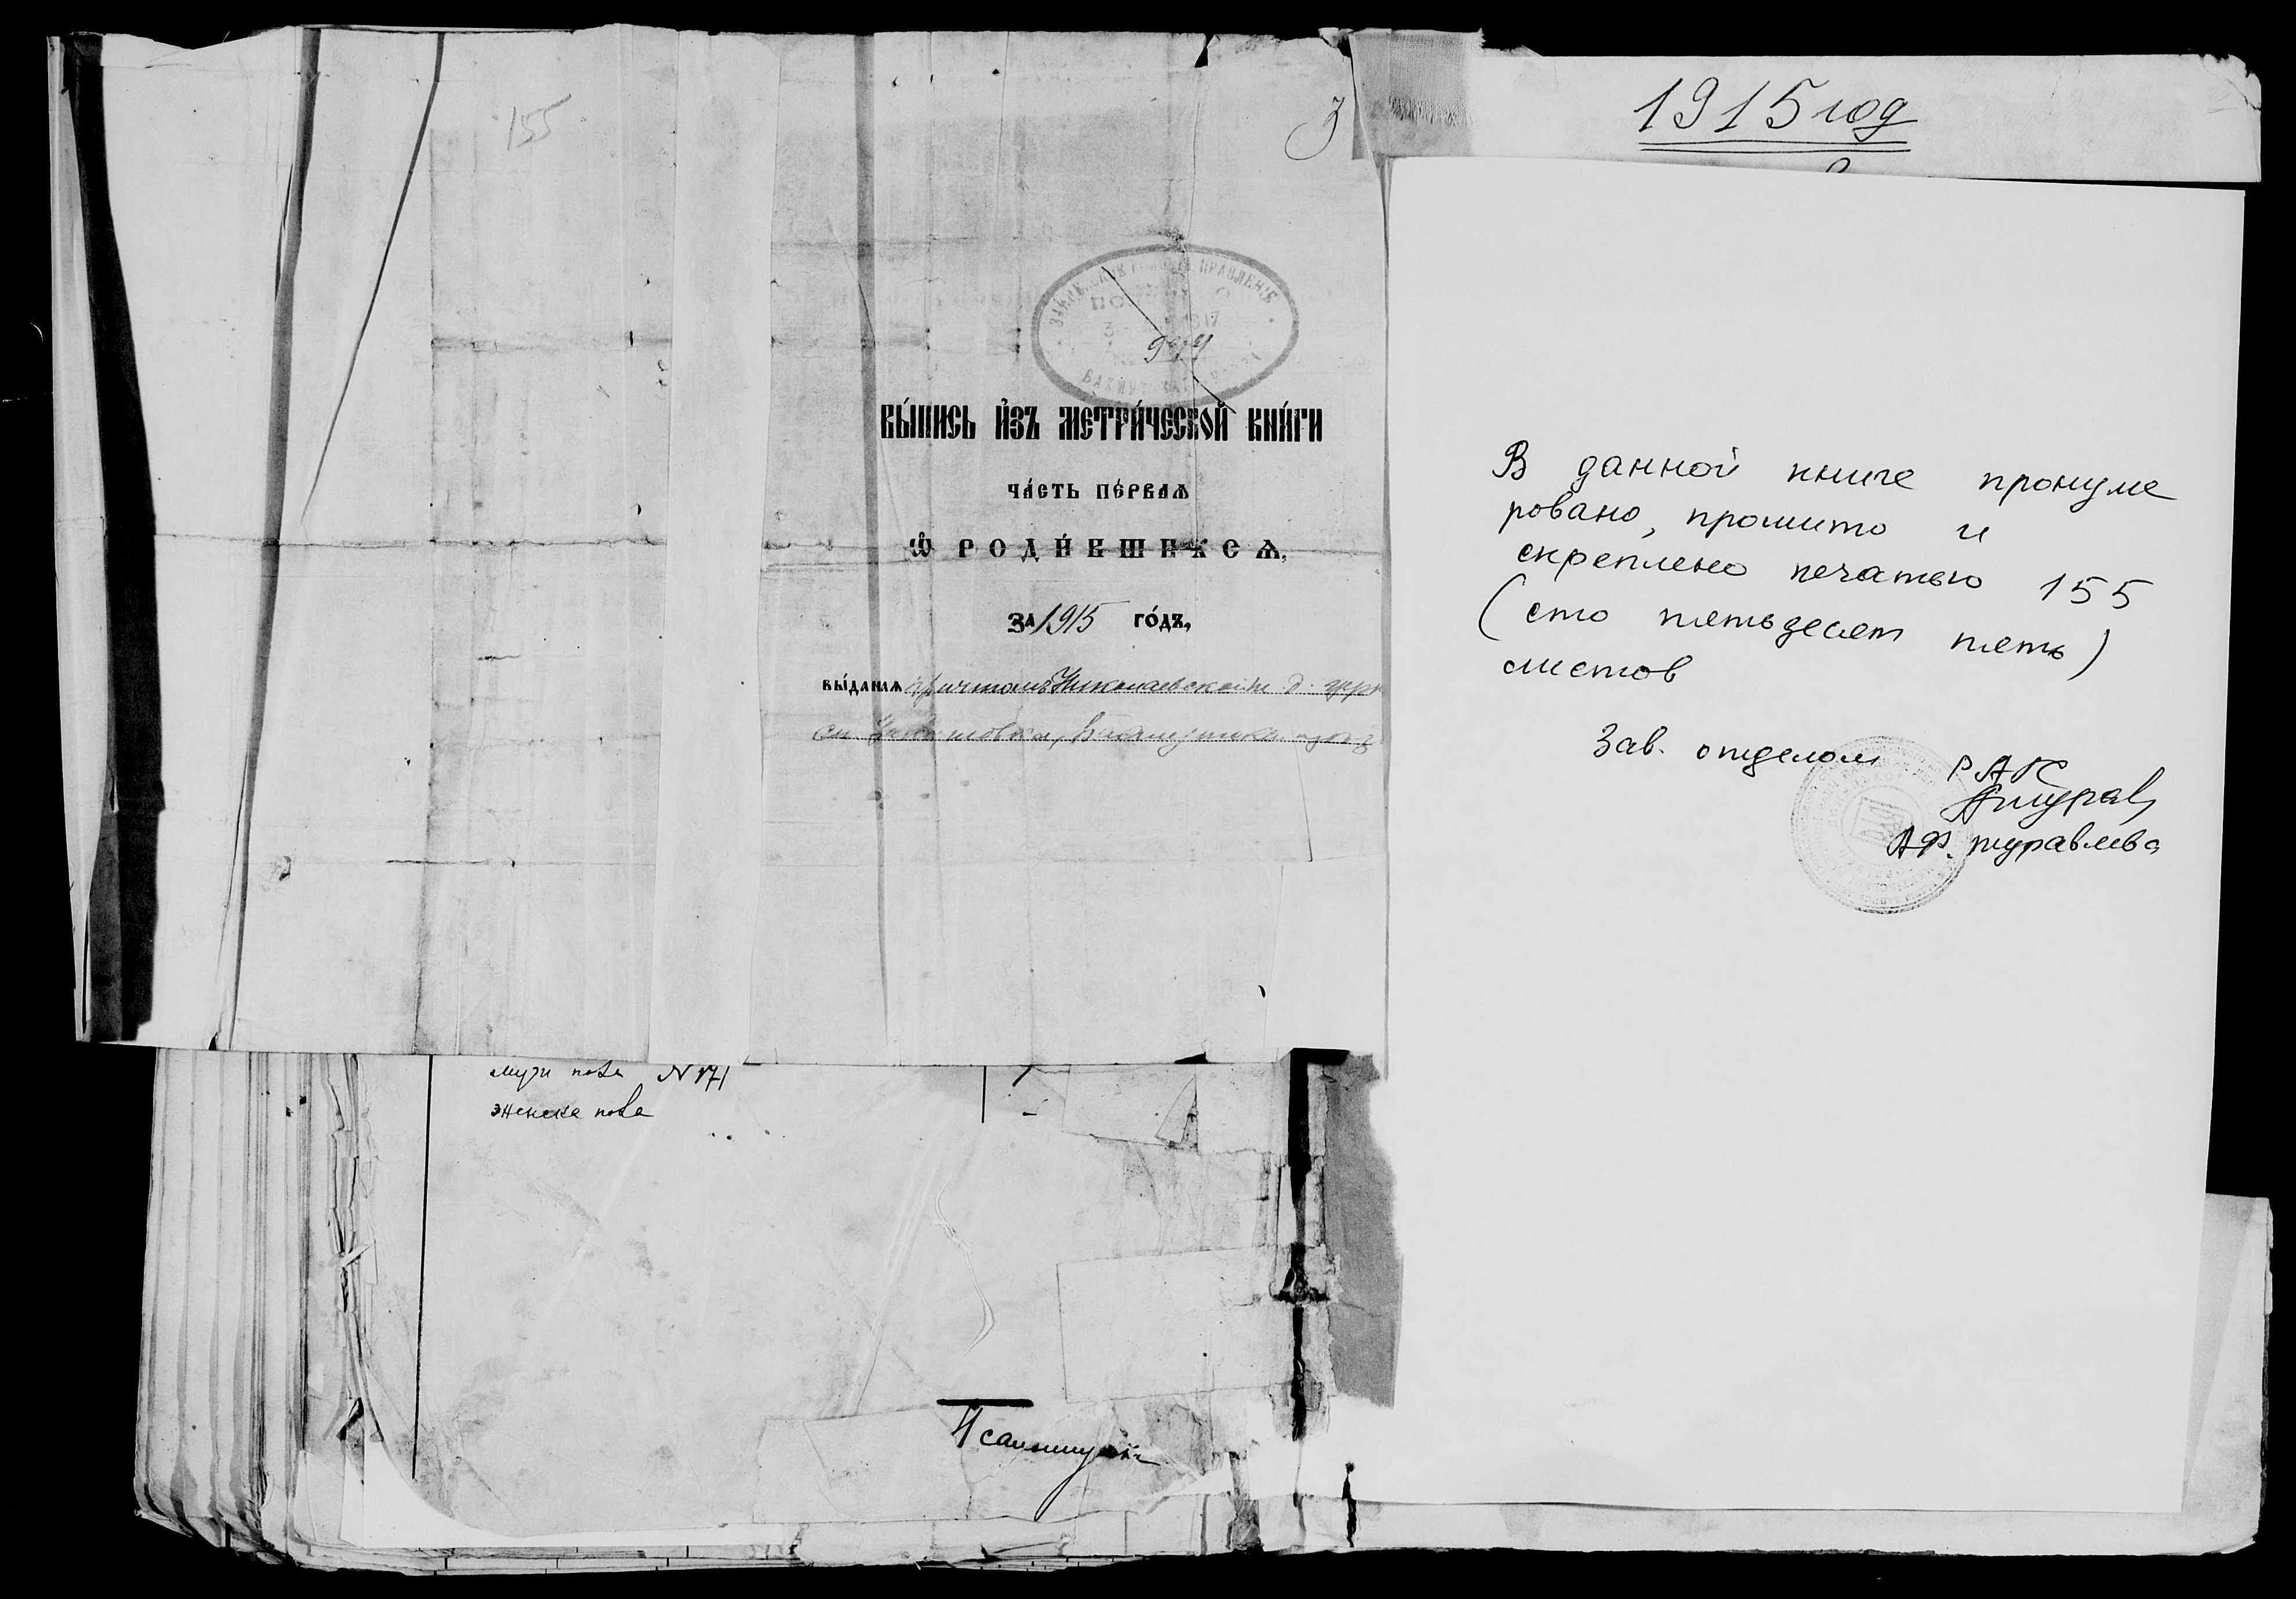 155
3
ВЫ́ПИСЬ И҆ЗЪ МЕТРИ́ЧЕСКОЙ КНИ́ГИ
ЧА́СТЬ ПЕ́РВАѦ
Ѽ РОДИ́ВШИХСѦ,
ЗА 1915 ГО́ДЪ,
ВЫ́ДАНАѦ причтомъ Николаевской
мужи пола N 171
женска пола
Псаломщик
1915 год
В данной книге пронуме
ровано, прошито и
скреплено печатью 155
(сто пятьдесят пять)
листов
Зав. отделом РАГС
А.Ф. Журавлева